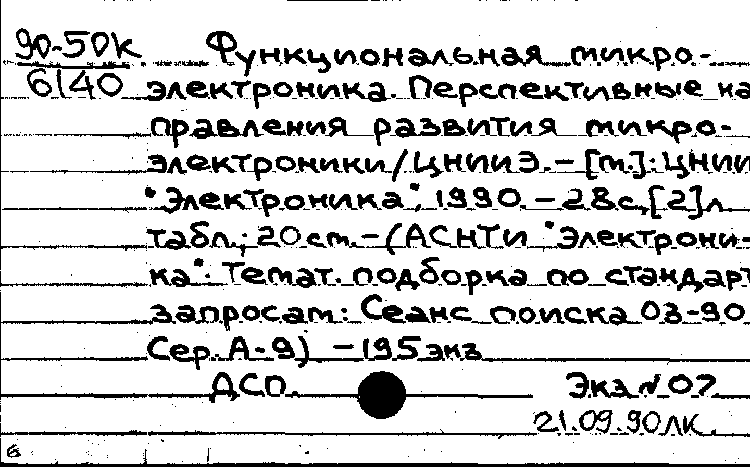 90-50к Функциональная микро-
6140 электроника. Перспективные на
правления развития микро-
электроники/ЦНИИЭ. – [м.]: ЦНИИ
"Электроника", 1990. – 28с.,[2]л.
табл.; 20 cm. – (АСНТИ "Электрони-
ка": Темат. подборка по стандарт
запросам: Сеанс поиска 03-90
Сер. А-9) – 195 экз
ДСП. Экз № 07
21.09.90 ЛК.
6